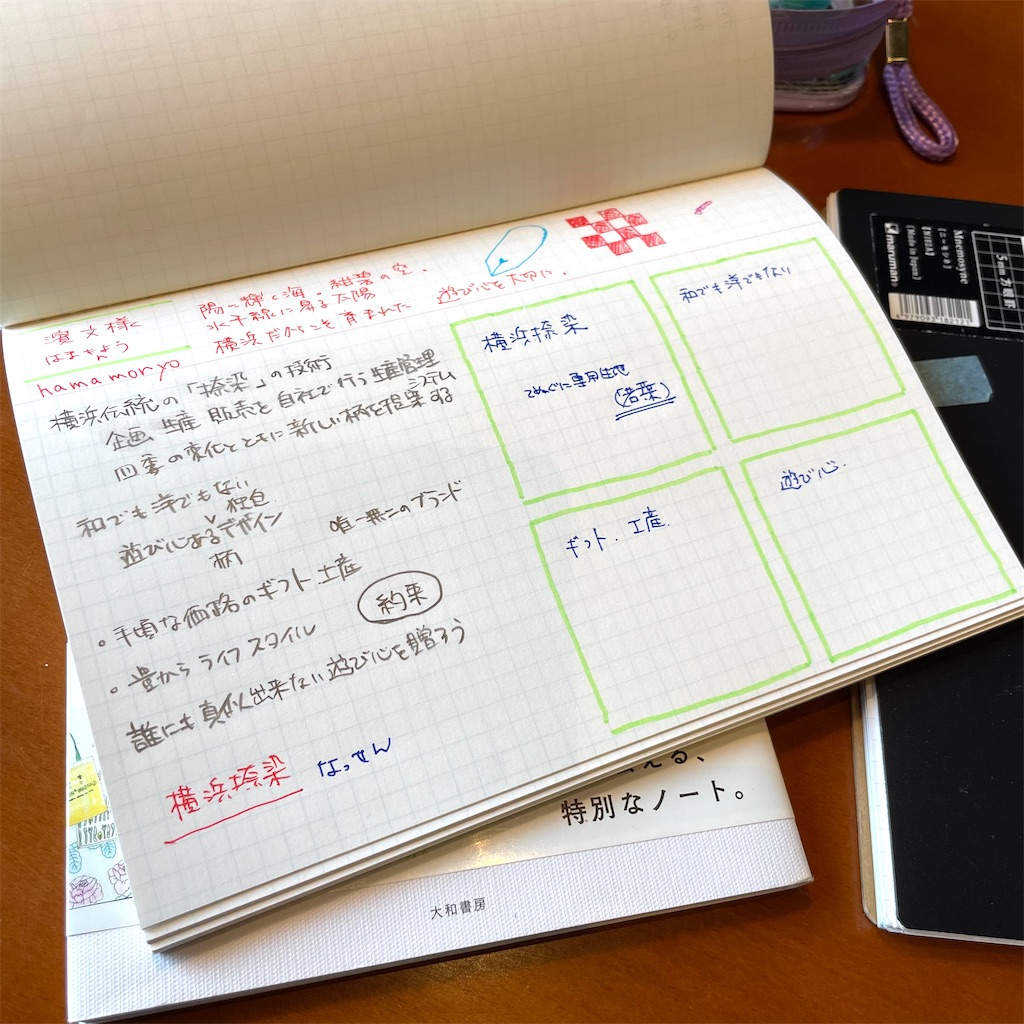 濱文様
はまもんよう
hamamonyo
陽に輝く海。紺碧の空。
水平線に昇る太陽
横浜だからこそ育まれた
遊び心を大切に。
横浜伝統の「捺染」の技術
企画 生産 販売を自社で行う生産管理
システム
四季の変化とともに新しい柄を提案する
和でも洋でもない
独自
遊び心あるデザイン
柄
唯一無二のブランド
・手頃な価格のギフト 土産
約束
・豊かな ライフスタイル
誰にも真似出来ない遊び心を贈ろう
横浜捺染 なっせん
横浜捺染
てぬぐい専用生地
和でも洋でもない
ギフト・土産
遊び心。
特別なノート。
大和書房
maruman
Mnemosyne
【ニーモシネ】
(Made in Japan)
5mm方眼罫